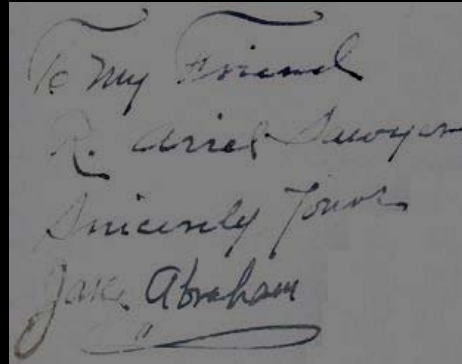 To My Friend
R. Ariel Sawyer
Sincerely Yours
Jake Abraham